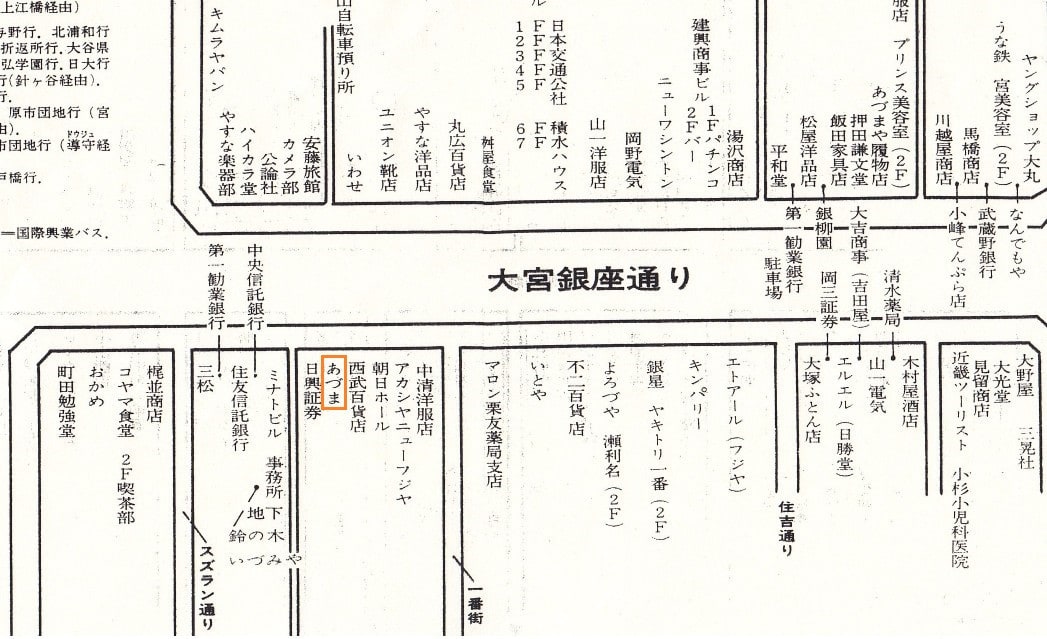 上江橋経由）
与野行．北浦和行
折返所行．大谷県
弘学園行．日大行
行（針ヶ谷経由）．
行．
原市団地行（宮
由）．
ドウジュ
市団地行（導守経
戸橋行．
＝国際興業バス．
キムラヤパン
やすな楽器部
ハイカラ堂
公論社
カメラ部
安藤旅館
山自転車預り所
いわせ
ユニオン靴店
やすな洋品店
丸広百貨店
舛屋食堂
ル
1F
2F
3F
4F
5F
日本交通公社
6F
7F
積水ハウス
山一洋服店
岡野電気
ニューワシントン
建興商事ビル
2Fバー
1Fパチンコ
湯沢商店
平和堂
松屋洋品店
飯田家具店
押田謙文堂
あづまや履物店
服店
プリンス美容室（2F）
川越屋商店
馬橋商店
うな鉄
宮美容室（2F）
ヤングショップ大丸
第一勧業銀行
駐車場
銀柳園
大吉商事（吉田屋）
岡三証券
清水薬局
小峰てんぷら店
武蔵野銀行
なんでもや
大宮銀座通り
第一勧業銀行
中央信託銀行
町田勉強堂
おかめ
コヤマ食堂
2F喫茶部
梶並商店
三松
住友信託銀行
ミナトビル
事務所
地下
鈴の木
いづみや
スズラン通り
日興証券
あづま
西武百貨店
朝日ホール
アカシヤニューフジヤ
中清洋服店
一番街
マロン栗友薬局支店
いとや
不二百貨店
よろづや
瀬利名（2F）
銀星
ヤキトリ一番（2F）
キンパリー
エトアール（フジヤ）
住吉通り
大塚ふとん店
エルエル（日勝堂）
山一電気
木村屋酒店
近畿ツーリスト
小杉小児科医院
見留商店
大光堂
大野屋
三晃社